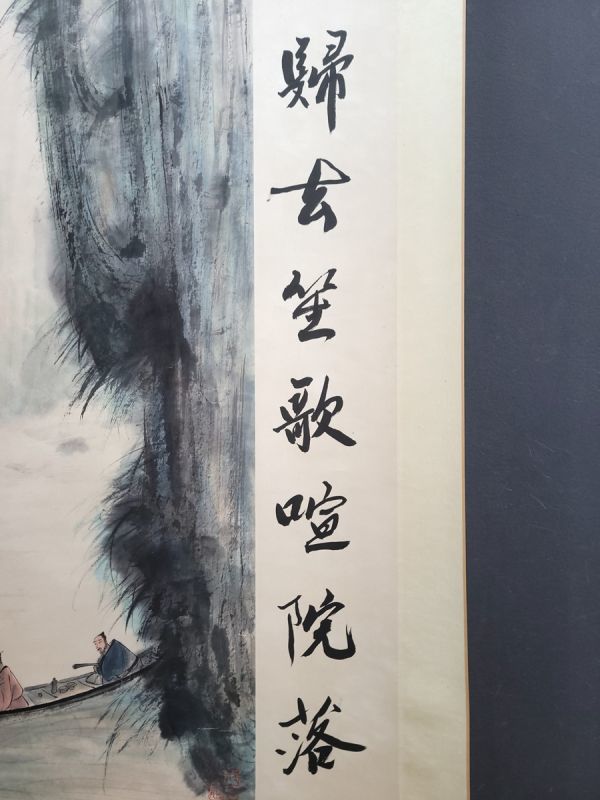 歸去笙歌喧院落